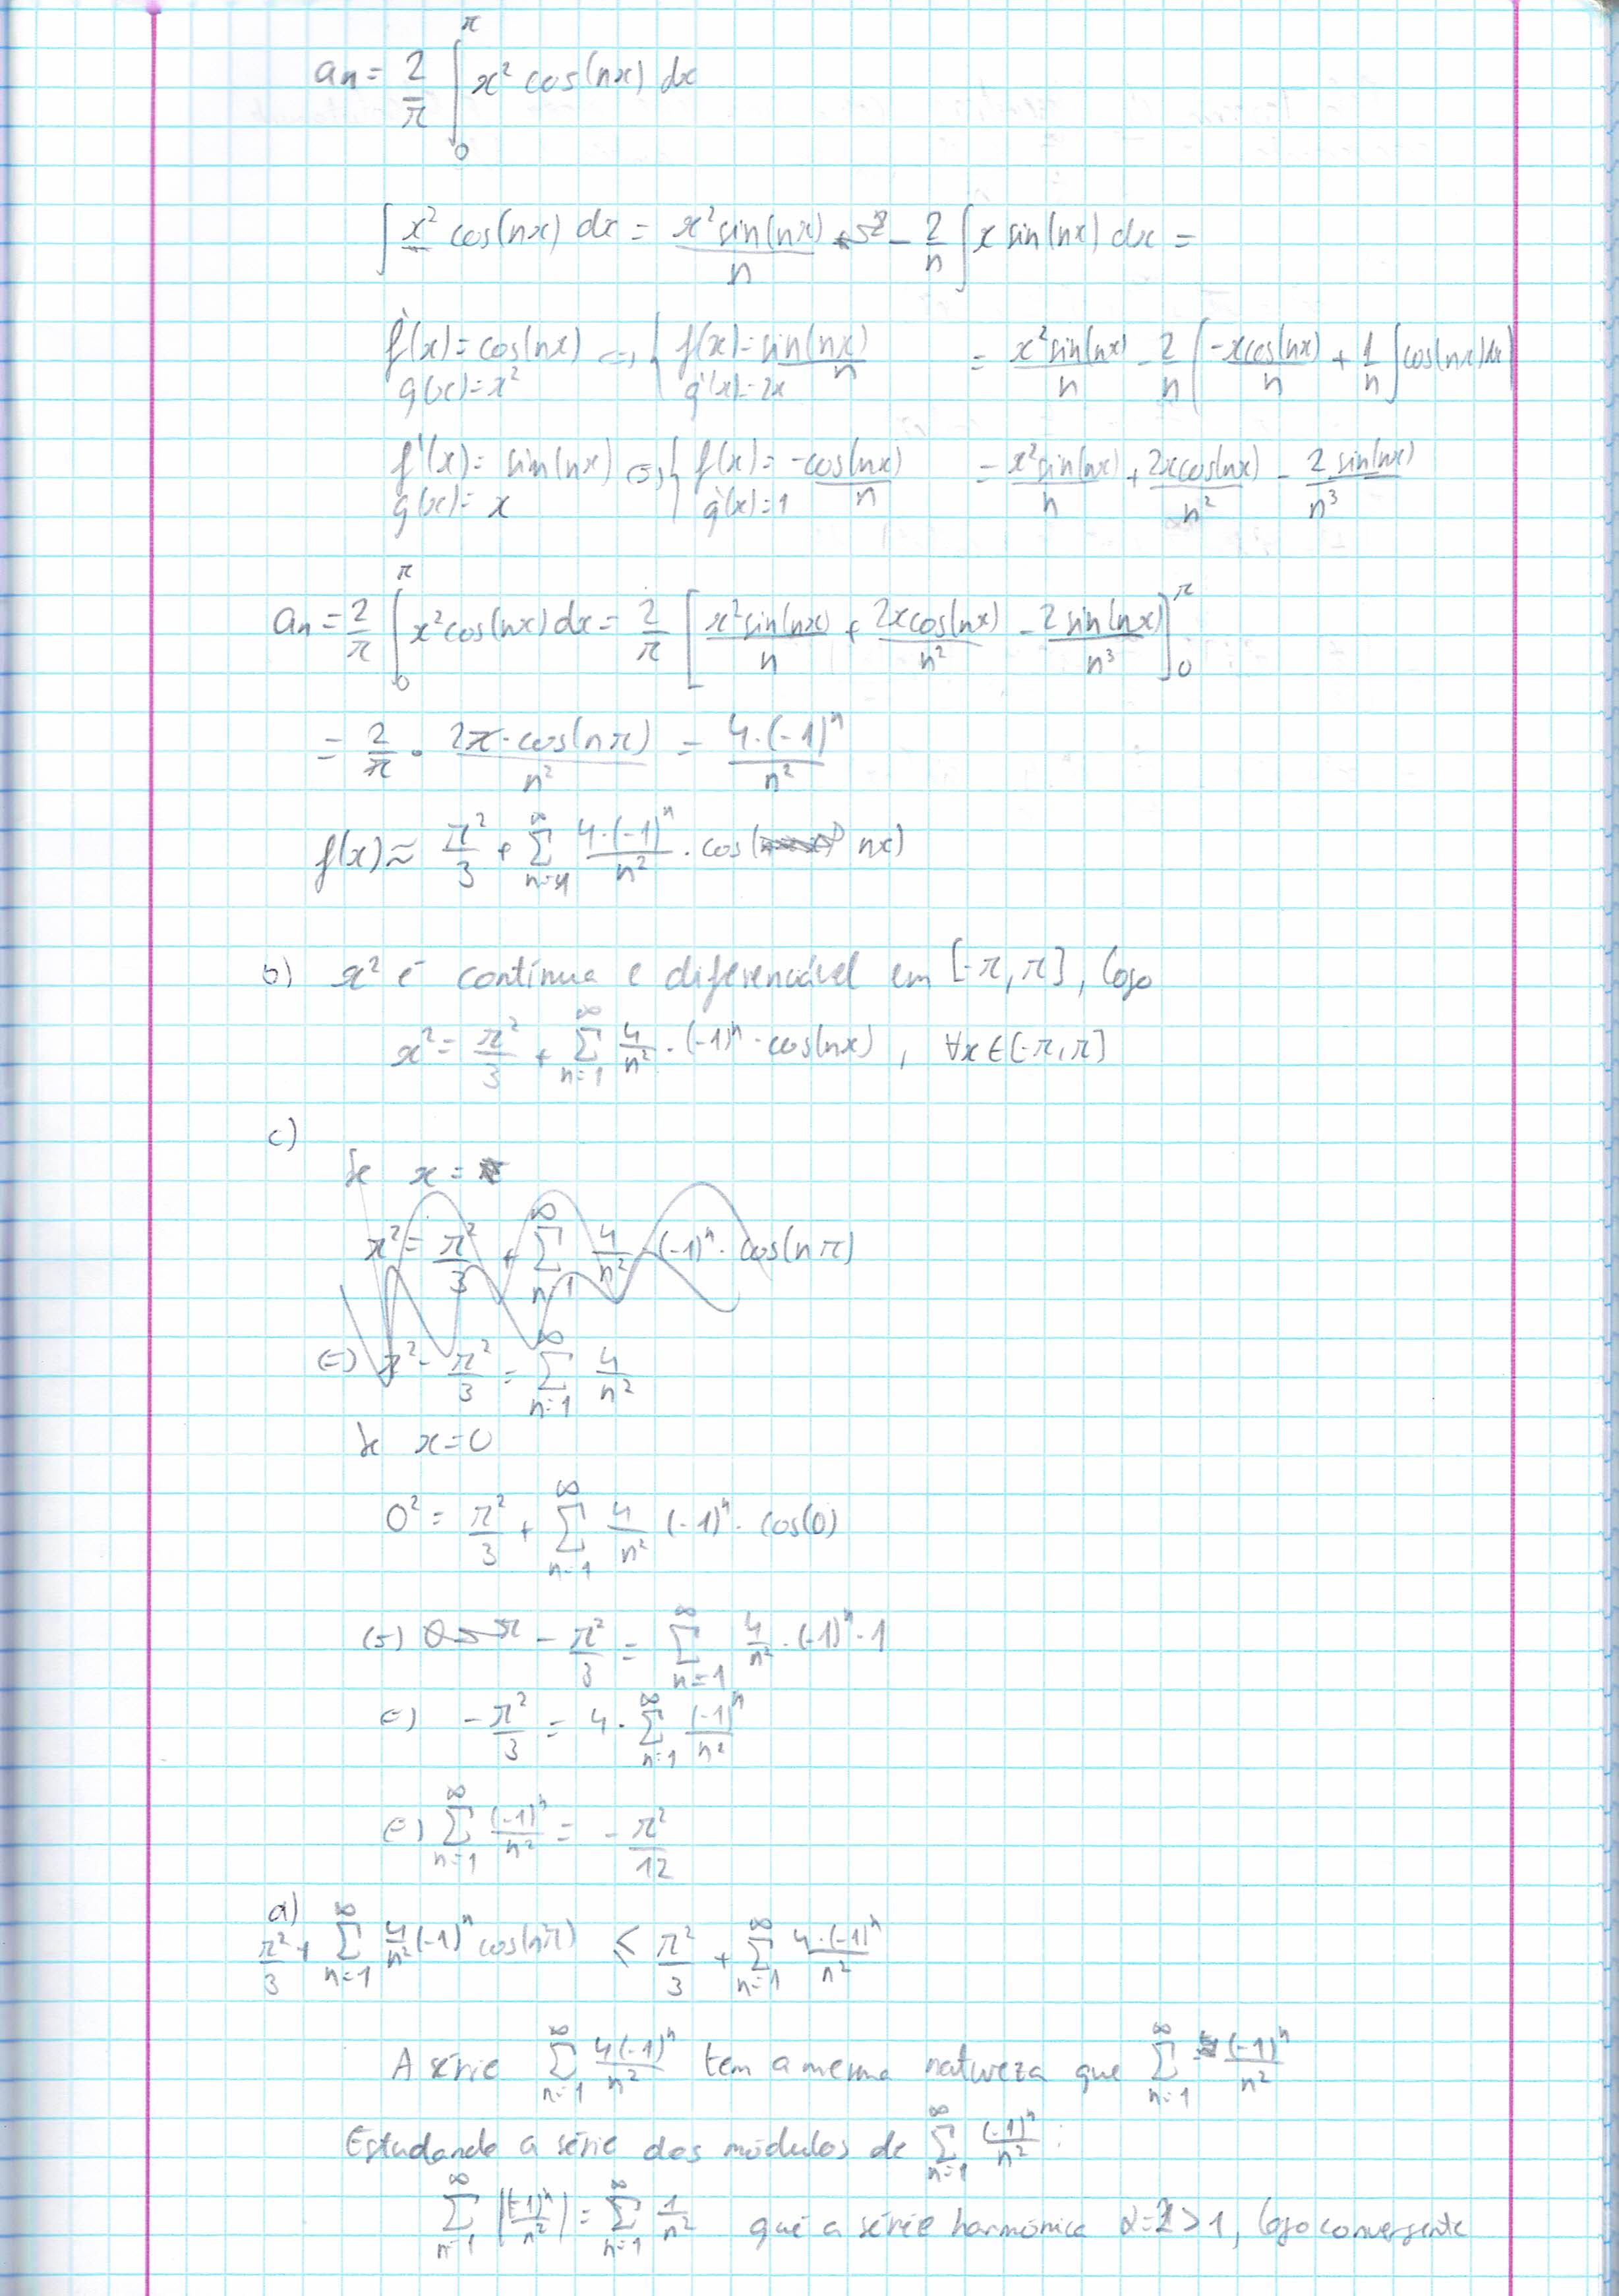 aₙ = 2/π ∫₀^π x² cos(nx) dx
∫ x² cos(nx) dx = x² sin(nx)/n - 2/n ∫ x sin(nx) dx =
f'(x) = cos(nx) ⇔ { f(x) = sin(nx)/n = x² sin(nx)/n - 2/n ( -x cos(nx)/n + 1/n ∫ cos(nx) dx )
g(x) = x² g'(x) = 2x
f'(x) = sin(nx) ⇔ { f(x) = -cos(nx)/n = x² sin(nx)/n + 2x cos(nx)/n² - 2 sin(nx)/n³
g(x) = x g'(x) = 1
aₙ = 2/π ∫₀^π x² cos(nx) dx = 2/π [ x² sin(nx)/n + 2x cos(nx)/n² - 2 sin(nx)/n³ ]₀^π
= 2/π · 2π · cos(nπ)/n² = 4·(-1)ⁿ/n²
f(x) ≈ π²/3 + ∑_{n=1}^∞ 4·(-1)ⁿ/n² · cos( nx)
b) x² é contínua e diferenciável em [-π, π], logo
x² = π²/3 + ∑_{n=1}^∞ 4/n² · (-1)ⁿ · cos(nx) , ∀x ∈ [-π, π]
c)
Se x = π
π² = π²/3 + ∑_{n=1}^∞ 4/n² (-1)ⁿ · cos(nπ)
(=) π² - π²/3 = ∑_{n=1}^∞ 4/n²
Se x = 0
0² = π²/3 + ∑_{n=1}^∞ 4/n² (-1)ⁿ · cos(0)
(=) - π²/3 = ∑_{n=1}^∞ 4/n² · (-1)ⁿ · 1
(=) - π²/3 = 4 · ∑_{n=1}^∞ (-1)ⁿ/n²
(=) ∑_{n=1}^∞ (-1)ⁿ/n² = - π²/12
d)
π²/3 + ∑_{n=1}^∞ 4/n² (-1)ⁿ cos(n²π) ≤ π²/3 + ∑_{n=1}^∞ 4·(-1)ⁿ/n²
A série ∑_{n=1}^∞ 4(-1)ⁿ/n² tem a mesma natureza que ∑_{n=1}^∞ (-1)ⁿ/n²
Estudando a série dos módulos de ∑_{n=1}^∞ (-1)ⁿ/n² :
∑_{n=1}^∞ |(-1)ⁿ/n²| = ∑_{n=1}^∞ 1/n² que a série harmónica α=2>1, logo convergente